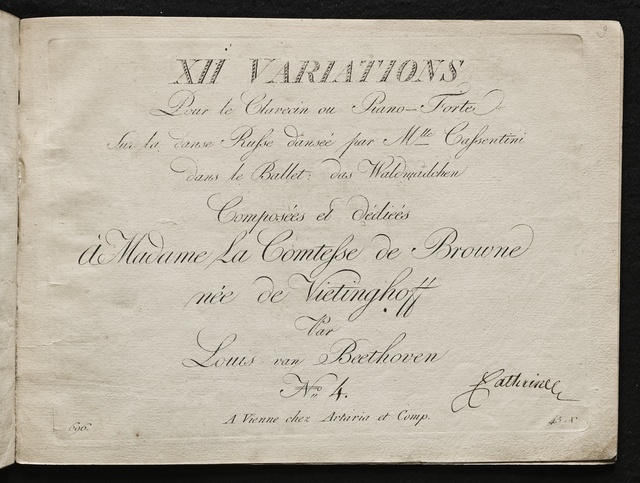 XII VARIATIONS
Pour le Clavecin ou Piano-Forte
Sur la danse Russe dansée par Mlle Cassentini
dans le Ballet: das Waldmädchen
Composées et dédiées
à Madame La Comtesse de Browne
née de Vietinghoff
Par
Louis van Beethoven
No 4.
A Vienne chez Artaria et Comp.
696.